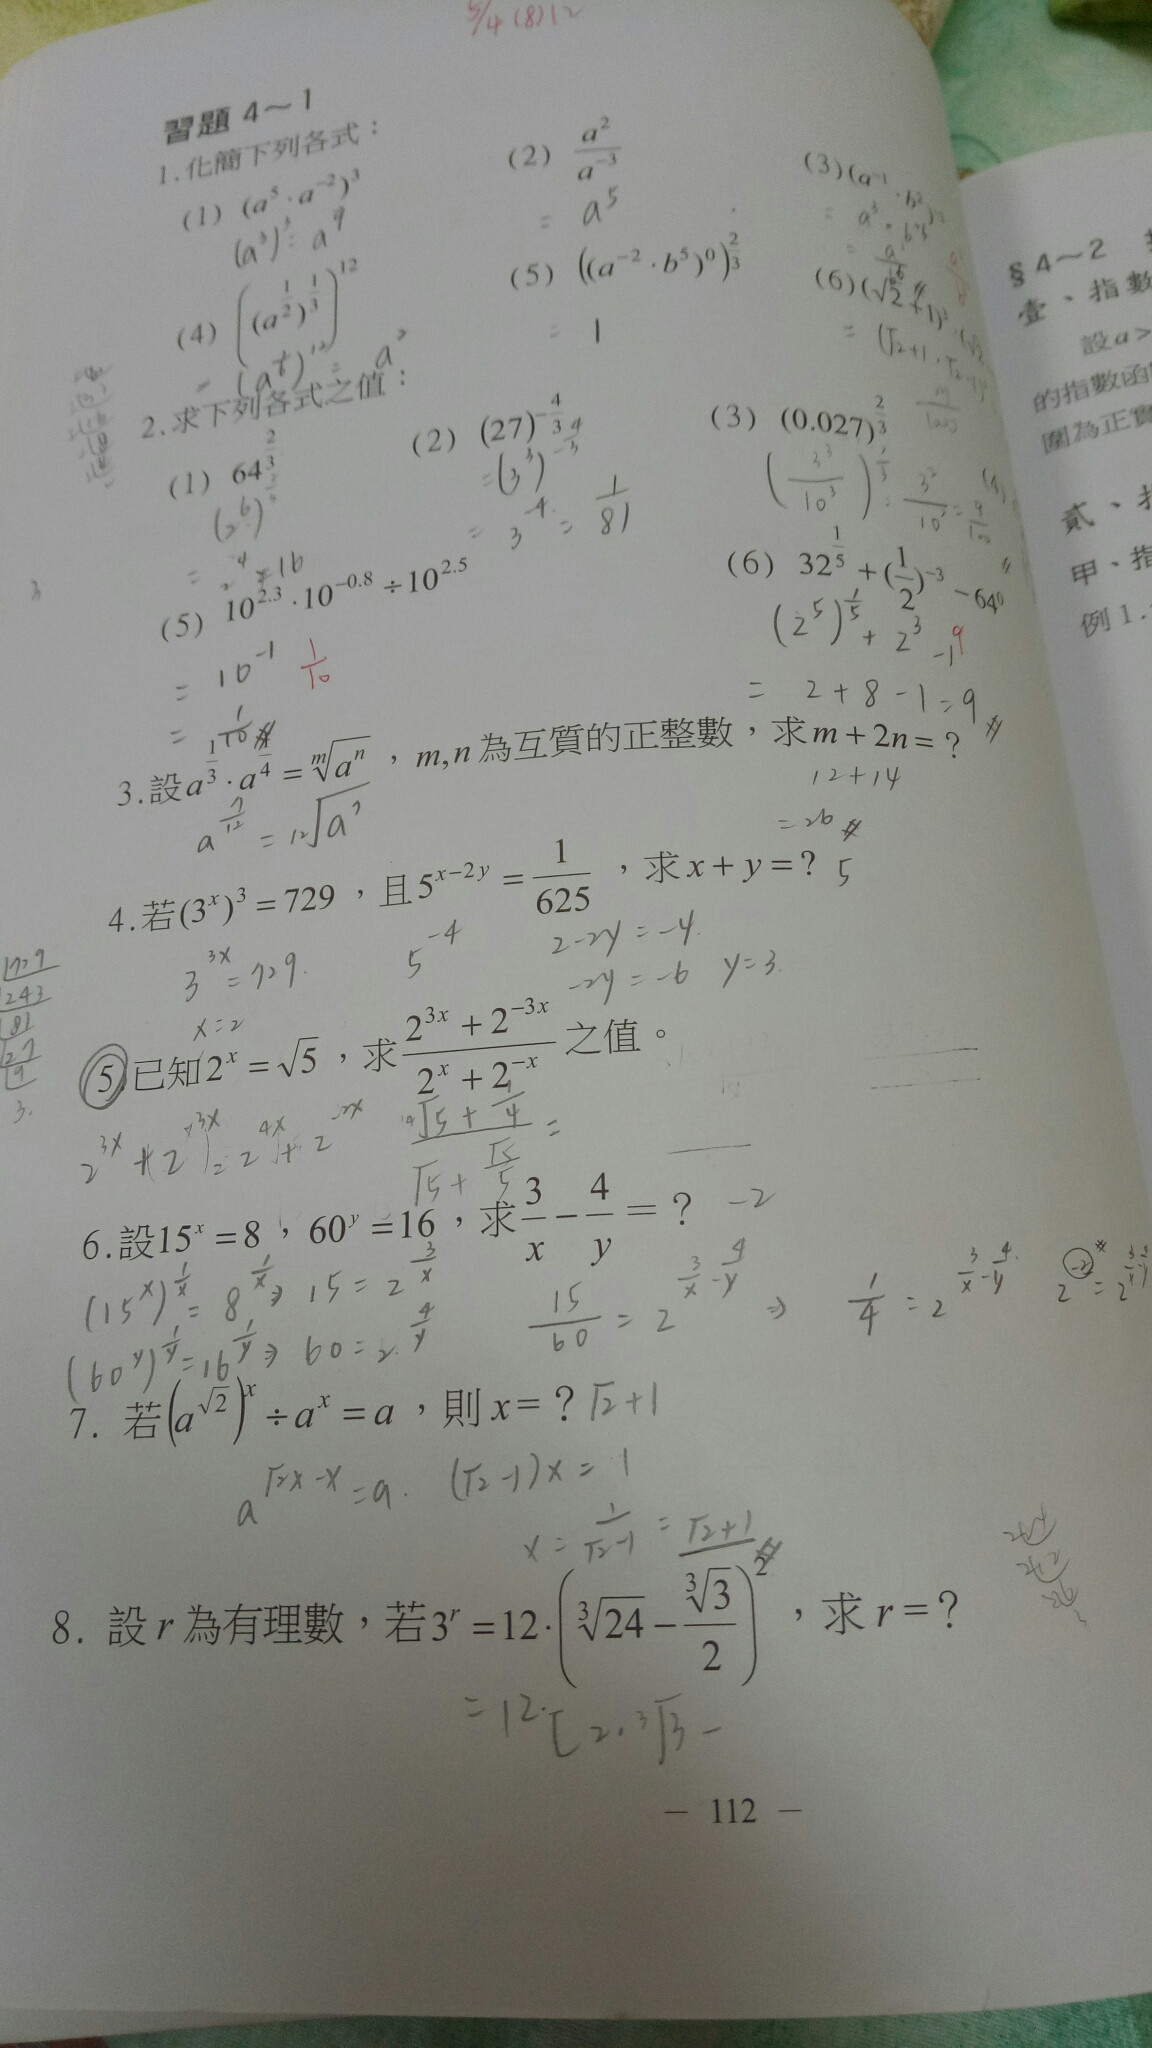 5/4 (8)12
習題 4～1
1.化簡下列各式：
(1) (a⁵·a⁻²)³
(a³)³ = a⁹
(2) a²/a⁻³
= a⁵
(3) (a⁻¹·b²)
(4) ((a^(1/2))^(1/3))^12
(5) ((a⁻²·b⁵)⁰)^(2/3)
= 1
(6) (√2+1)
2.求下列各式之值：
(1) 64^(2/3)
= 2⁴ = 16
(2) (27)^(-4/3)
= (3³)^(-4/3)
= 3⁻⁴ = 1/81
(3) (0.027)^(2/3)
(3³/10³)^(2/3) = 3²/10² = 9/100
(5) 10^2.3·10^-0.8÷10^2.5
= 10⁻¹ 1/10
= 1/10 #
(6) 32^(1/5)+(1/2)⁻³−64⁰
(2⁵)^(1/5) + 2³ − 1 9
= 2+8−1=9 #
3.設a^(1/3)·a^(1/4)=ᵐ√aⁿ，m,n為互質的正整數，求m+2n=？
a^(7/12) = ¹²√a⁷
12+14
= 26 #
4.若(3ˣ)³=729，且5^(x−2y)=1/625，求x+y=？ 5
3^(3x) = 729.
x=2
5⁻⁴
2−2y=−4.
−2y=−6 y=3.
5.已知2ˣ=√5，求(2^(3x)+2^(−3x))/(2ˣ+2⁻ˣ)之值。
6.設15ˣ=8，60ʸ=16，求3/x−4/y=？ −2
(15ˣ)^(1/x) = 8^(1/x) ⇒ 15 = 2^(3/x)
(60ʸ)^(1/y) = 16^(1/y) ⇒ 60 = 2^(4/y)
15/60 = 2^(3/x−4/y) ⇒ 1/4 = 2^(3/x−4/y)
7. 若(a^√2)ˣ÷aˣ=a，則x=？ √2+1
a^(√2x−x) = a. (√2−1)x = 1
x = 1/(√2−1) = √2+1 #
8. 設r為有理數，若3ʳ=12·(³√24−³√3/2)²，求r=？
= 12·[2·³√3 −
− 112 −
§4～2
壹、指數
設a>
的指數函
圍為正實
貳、指
甲、指
例1.